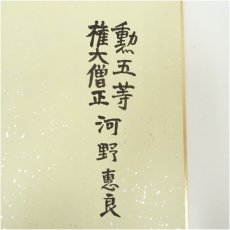 勲五等
権大僧正
河野惠良